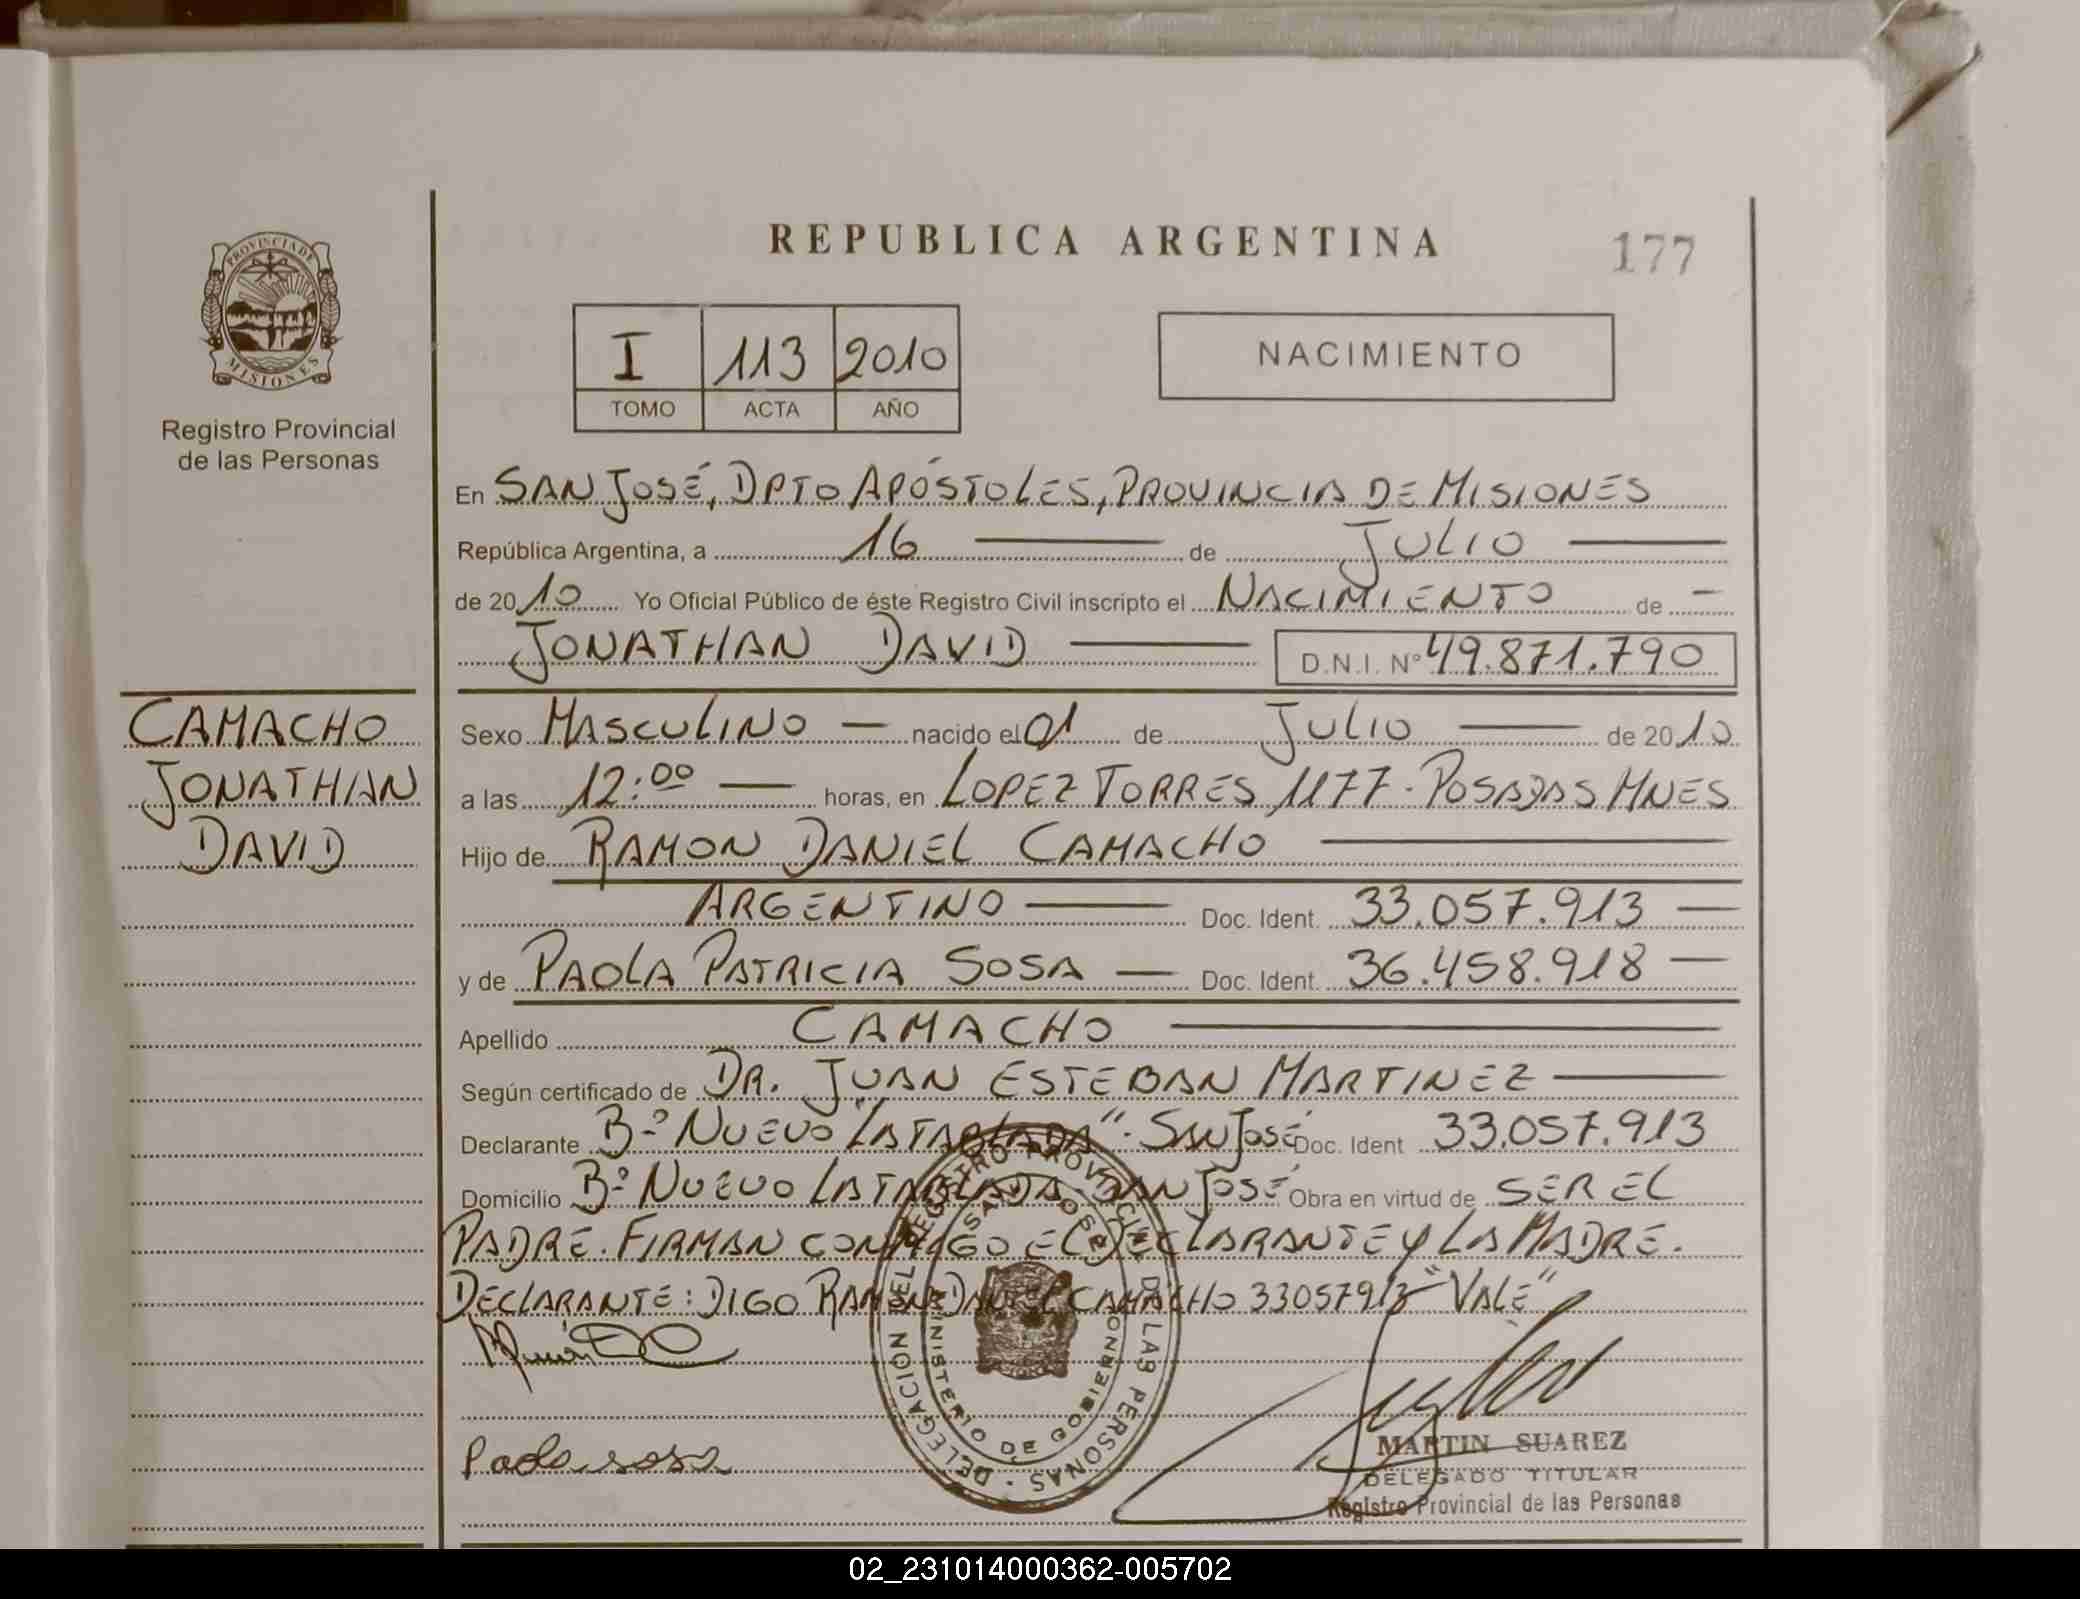 REPUBLICA ARGENTINA
177
PROVINCIA DE
MISIONES
Registro Provincial
de las Personas
I 113 2010
TOMO ACTA AÑO
NACIMIENTO
En SAN JOSÉ, DPTO APÓSTOLES, PROVINCIA DE MISIONES
República Argentina, a 16 de JULIO
de 2010 Yo Oficial Público de éste Registro Civil inscripto el NACIMIENTO de
JONATHAN DAVID D.N.I. Nº 49.871.790
CAMACHO
JONATHAN
DAVID
Sexo MASCULINO nacido el 01 de JULIO de 2010
a las 12:00 horas, en LOPEZ TORRES 1177. POSADAS MNES
Hijo de RAMON DANIEL CAMACHO
ARGENTINO Doc. Ident. 33.057.913
y de PAOLA PATRICIA SOSA Doc. Ident. 36.458.918
Apellido CAMACHO
Según certificado de DR. JUAN ESTEBAN MARTINEZ
Declarante Bº NUEVO "LA TABLADA". SAN JOSÉ Doc. Ident 33.057.913
Domicilio Bº NUEVO LA TABLADA. SAN JOSÉ. Obra en virtud de SER EL
PADRE. FIRMAN CONMIGO EL DECLARANTE Y LA MADRE.
DECLARANTE: DIGO RAMON DANIEL CAMACHO 33057913 "VALE"
Paola sosa
DELEGACION DEL REGISTRO PROVINCIAL DE LAS PERSONAS
SAN JOSE
MINISTERIO DE GOBIERNO
MARTIN SUAREZ
DELEGADO TITULAR
Registro Provincial de las Personas
02_231014000362-005702